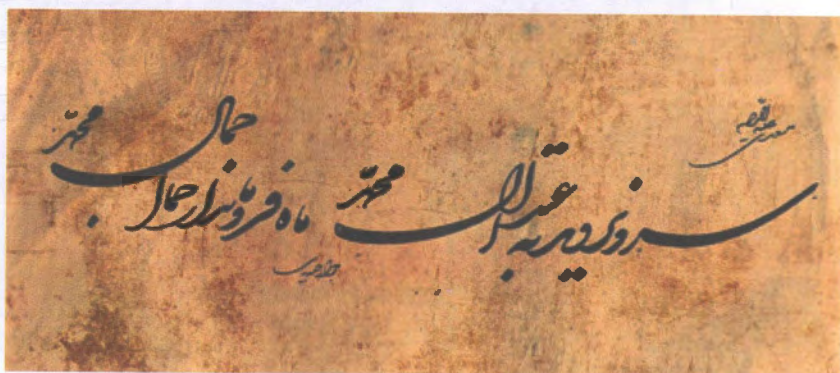 سرو نروید به اعتدال محمد
ماه فروماند از جمال محمد